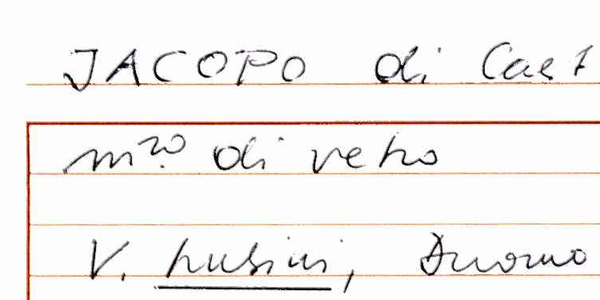 JACOPO di Cast
m.ro di vetro
V. Lusini, Duomo